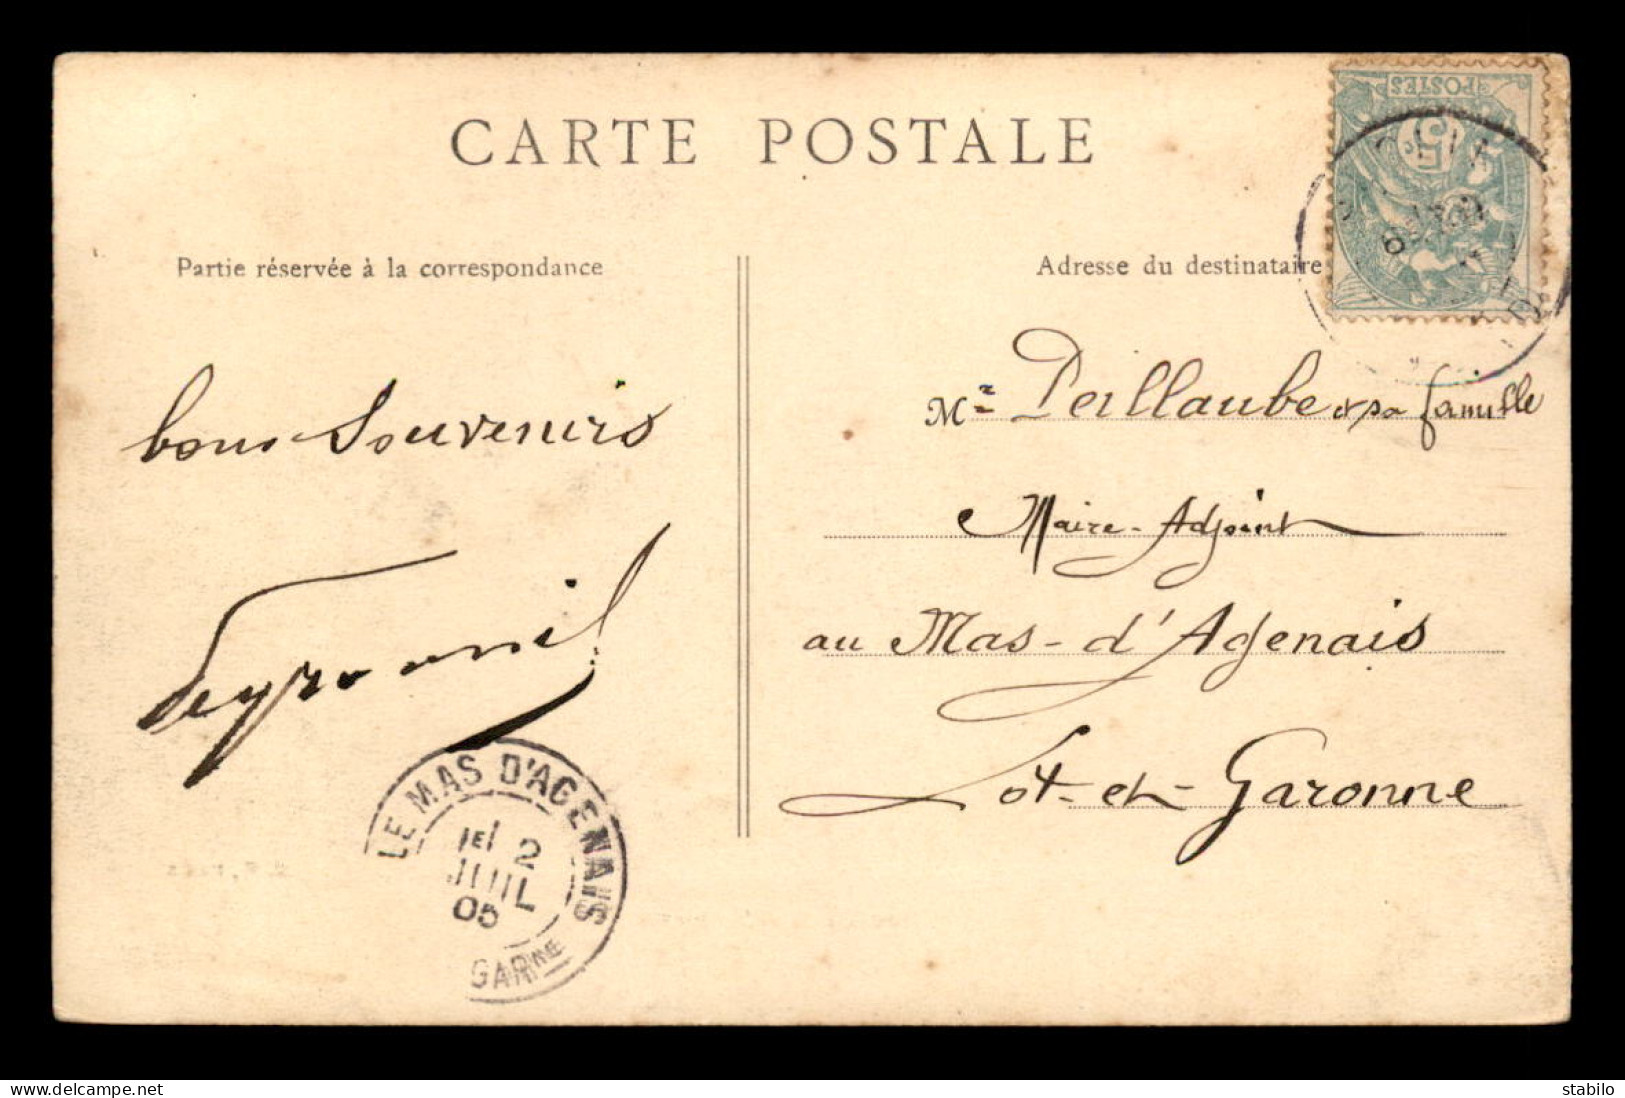 CARTE POSTALE
Partie réservée à la correspondance
Adresse du destinataire
POSTES
5
bons Souvenirs
M Peillaube et sa famille
Maire-Adjoint
au Mas-d'Agenais
Lot-et-Garonne
LE MAS D'AGENAIS
1E 2
JUIL
05
GARNE
delcampe.net
stabilo